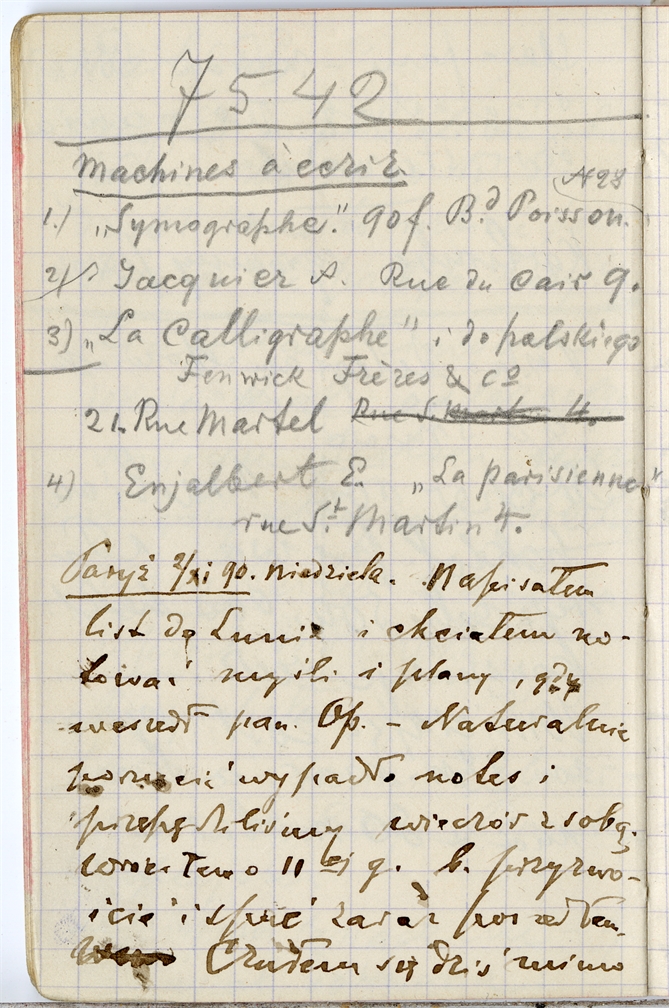 7542
Machines à ecrir.
N 28
1.) „Symographe." 90 f. B.d Poisson.
2) Jacquier A. Rue du Cair 9.
3) „La Calligraphe" i do polskiego
Fenwick Frères & Co
21. Rue Martel Rue S. Martin 4.
4) Enjalbert E. „La parisienne"
rue St. Martin 4.
Paryż 2/xi 90. niedziela. Napisałem
list do Lunia i chciałem no-
tować myśli i plany, gdy
wszedł pan. Op. – Naturalnie
porzucić wypadło notes i
przepędziliśmy wieczór z sobą.
11 ej g. b. przyzwo-
icie i spać zaraz poszedłem.
Czułem się dziś mimo